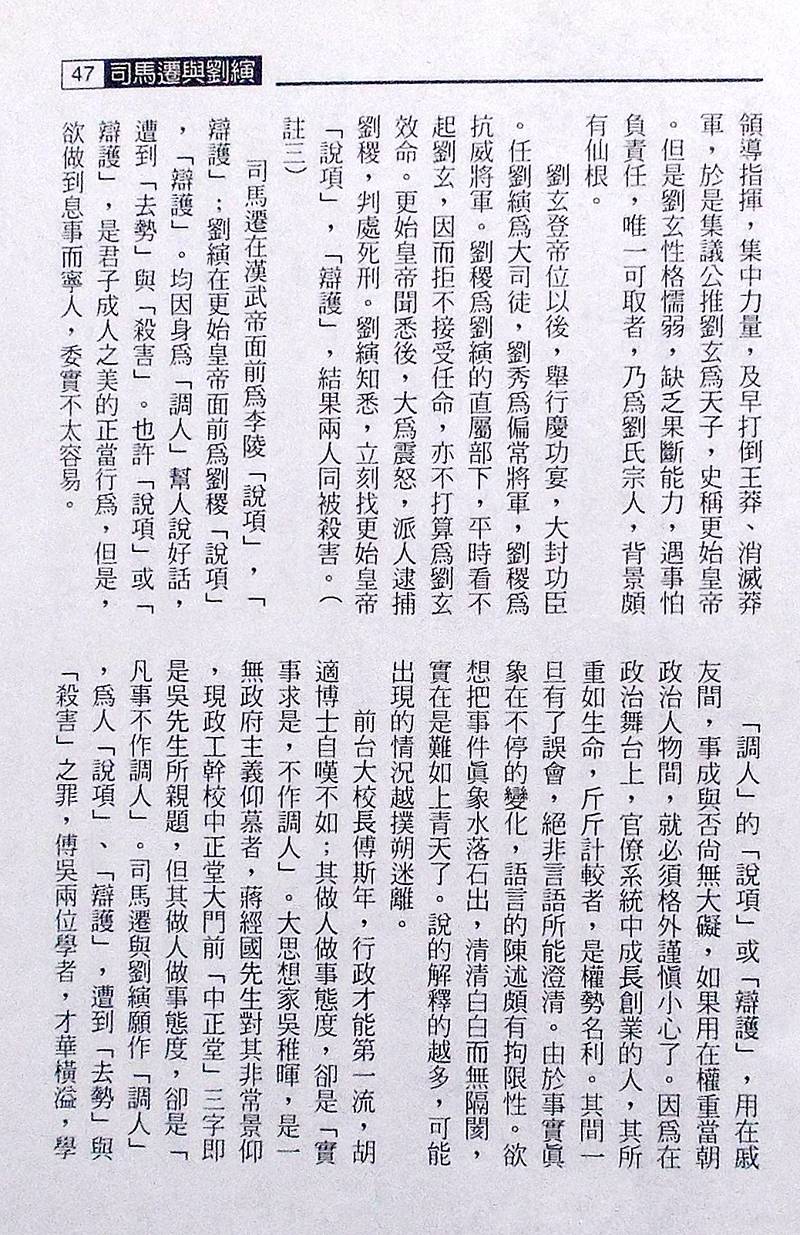 47 司馬遷與劉縯
領導指揮，集中力量，及早打倒王莽、消滅莽
軍，於是集議公推劉玄爲天子，史稱更始皇帝
。但是劉玄性格懦弱，缺乏果斷能力，遇事怕
負責任，唯一可取者，乃爲劉氏宗人，背景頗
有仙根。
劉玄登帝位以後，舉行慶功宴，大封功臣
。任劉縯爲大司徒，劉秀爲偏常將軍，劉稷爲
抗威將軍。劉稷爲劉縯的直屬部下，平時看不
起劉玄，因而拒不接受任命，亦不打算爲劉玄
效命。更始皇帝聞悉後，大爲震怒，派人逮捕
劉稷，判處死刑。劉縯知悉，立刻找更始皇帝
「說項」，「辯護」，結果兩人同被殺害。（
註三）
司馬遷在漢武帝面前爲李陵「說項」，「
辯護」；劉縯在更始皇帝面前爲劉稷「說項」
，「辯護」。均因身爲「調人」幫人說好話，
遭到「去勢」與「殺害」。也許「說項」或「
辯護」，是君子成人之美的正當行爲，但是，
欲做到息事而寧人，委實不太容易。
「調人」的「說項」或「辯護」，用在戚
友間，事成與否尙無大礙，如果用在權重當朝
政治人物間，就必須格外謹愼小心了。因爲在
政治舞台上，官僚系統中成長創業的人，其所
重如生命，斤斤計較者，是權勢名利。其間一
旦有了誤會，絕非言語所能澄清。由於事實眞
象在不停的變化，語言的陳述頗有拘限性。欲
想把事件眞象水落石出，清清白白而無隔閡，
實在是難如上青天了。說的解釋的越多，可能
出現的情況越撲朔迷離。
前台大校長傅斯年，行政才能第一流，胡
適博士自嘆不如；其做人做事態度，卻是「實
事求是，不作調人」。大思想家吳稚暉，是一
無政府主義仰慕者，蔣經國先生對其非常景仰
，現政工幹校中正堂大門前「中正堂」三字即
是吳先生所親題，但其做人做事態度，卻是「
凡事不作調人」。司馬遷與劉縯願作「調人」
，爲人「說項」、「辯護」，遭到「去勢」與
「殺害」之罪，傅吳兩位學者，才華橫溢，學